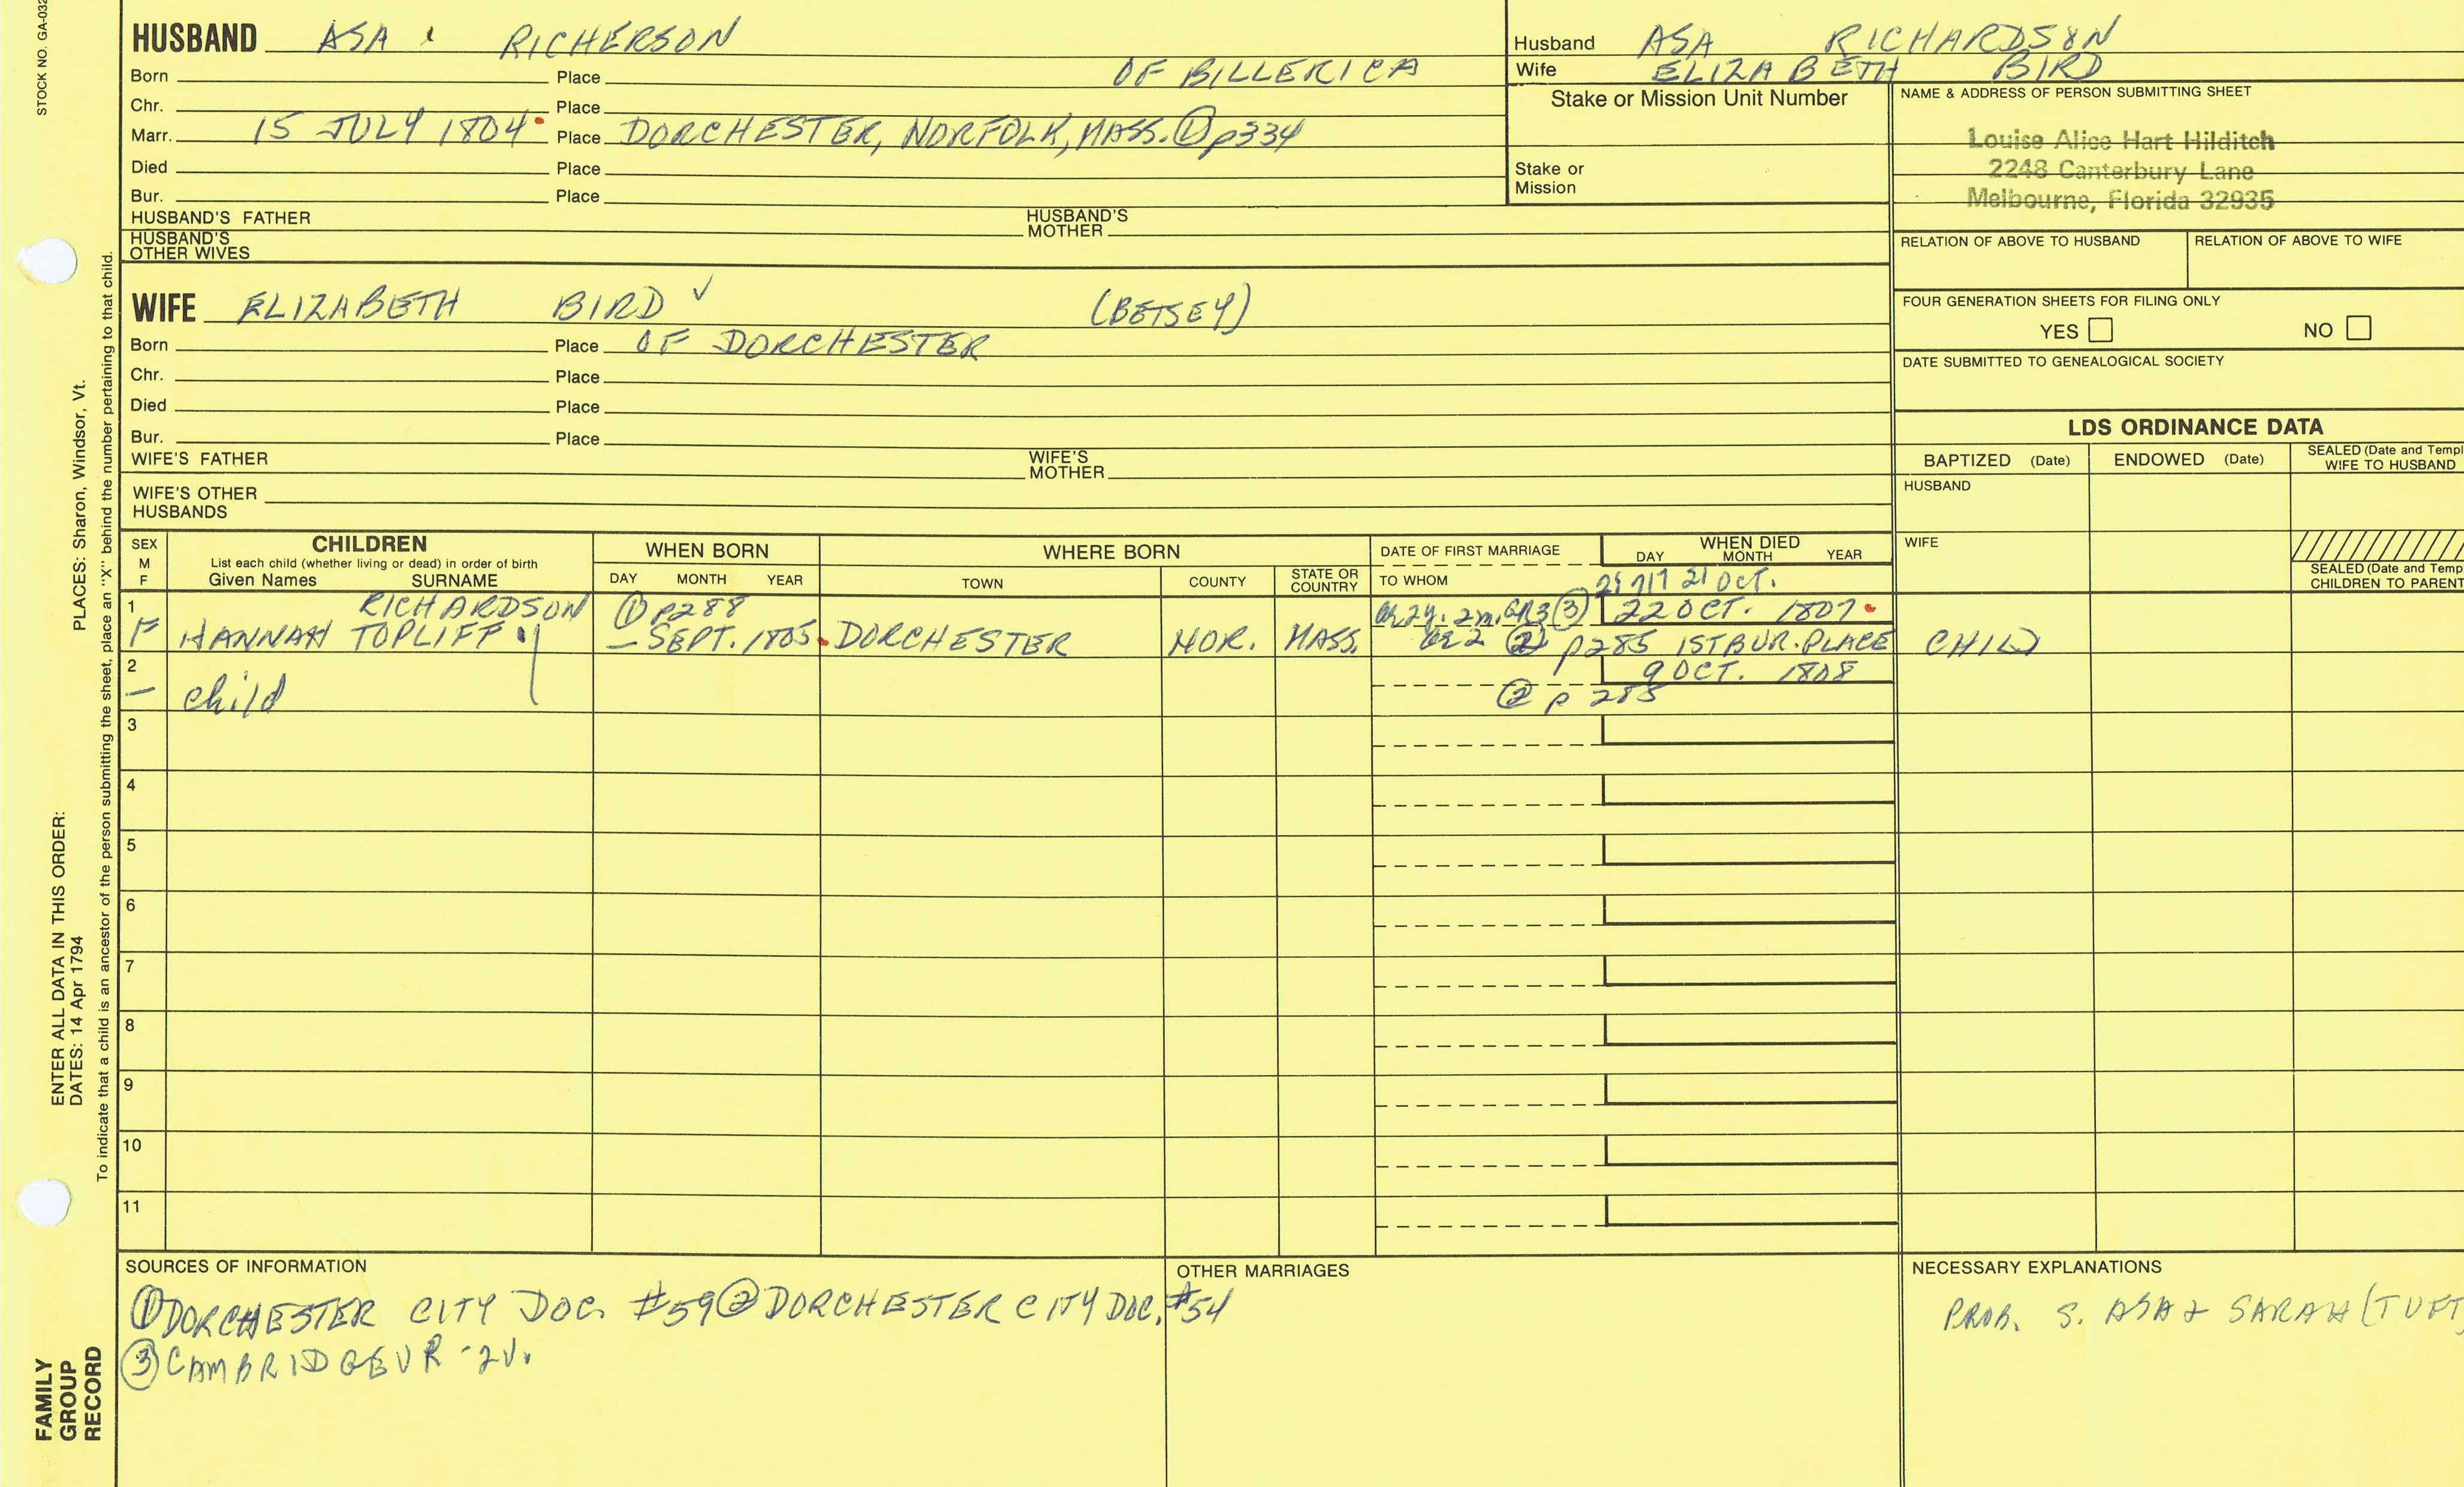 STOCK NO. GA-032
HUSBAND ASA RICHERSON
Born Place OF BILLERICA
Chr. Place
Marr. 15 JULY 1804 Place DORCHESTER, NORFOLK, MASS. ① p334
Died Place
Bur. Place
HUSBAND'S FATHER HUSBAND'S MOTHER
HUSBAND'S OTHER WIVES
Husband ASA RICHARDSON
Wife ELIZABETH BIRD
Stake or Mission Unit Number
Stake or Mission
NAME & ADDRESS OF PERSON SUBMITTING SHEET
Louise Alice Hart Hilditch
2248 Canterbury Lane
Melbourne, Florida 32935
RELATION OF ABOVE TO HUSBAND RELATION OF ABOVE TO WIFE
FOUR GENERATION SHEETS FOR FILING ONLY
YES NO
DATE SUBMITTED TO GENEALOGICAL SOCIETY
WIFE ELIZABETH BIRD ✓ (BETSEY)
Born Place OF DORCHESTER
Chr. Place
Died Place
Bur. Place
WIFE'S FATHER WIFE'S MOTHER
WIFE'S OTHER HUSBANDS
LDS ORDINANCE DATA
BAPTIZED (Date) ENDOWED (Date) SEALED (Date and Templ
WIFE TO HUSBAND
HUSBAND
WIFE
SEALED (Date and Temp
CHILDREN TO PARENT
SEX M F
CHILDREN
List each child (whether living or dead) in order of birth
Given Names SURNAME
WHEN BORN
DAY MONTH YEAR
WHERE BORN
TOWN COUNTY STATE OR COUNTRY
DATE OF FIRST MARRIAGE
TO WHOM
WHEN DIED
DAY MONTH YEAR
21 OCT.
1 RICHARDSON ① p288 2y. 2m. GR3 ③ 22 OCT. 1807
F HANNAH TOPLIFF — SEPT. 1805 DORCHESTER NOR. MASS. 2 ② p285 1ST BUR. PLACE CHILD
2 9 OCT. 1808
— child ② p 285
3
4
5
6
7
8
9
10
11
SOURCES OF INFORMATION
① DORCHESTER CITY DOC. #59 ② DORCHESTER CITY DOC. #54
③ CAMBRIDGE VR - 2V.
OTHER MARRIAGES
NECESSARY EXPLANATIONS
PROB. S. ASA & SARAH (TUFT
PLACES: Sharon, Windsor, Vt.
ENTER ALL DATA IN THIS ORDER:
DATES: 14 Apr 1794
To indicate that a child is an ancestor of the person submitting the sheet, place an "X" behind the number pertaining to that child.
FAMILY
GROUP
RECORD